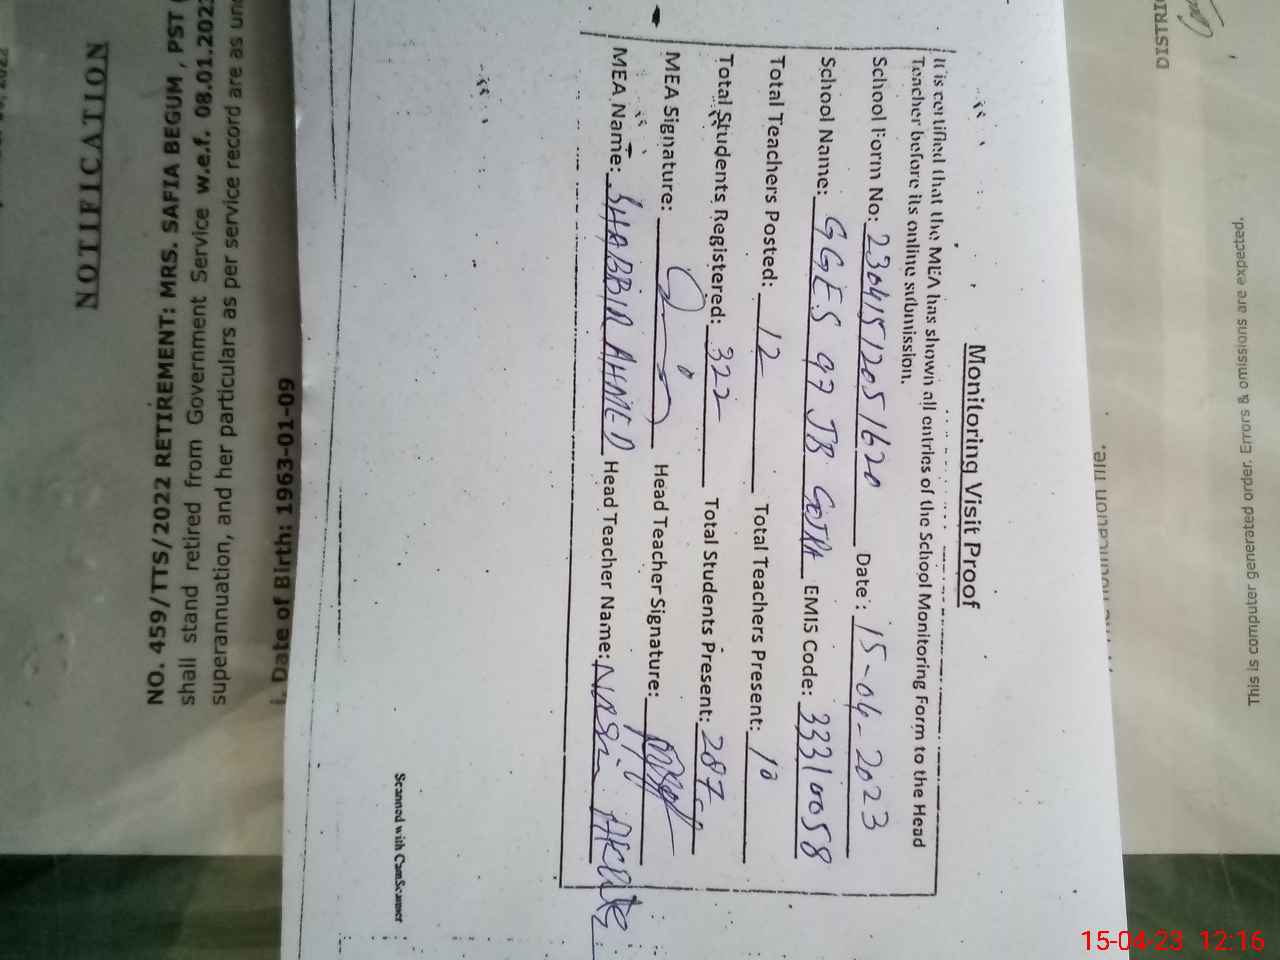 NOTIFICATION
NO. 459/TTS/2022 RETIREMENT: MRS. SAFIA BEGUM , PST
shall stand retired from Government Service w.e.f. 08.01.202
superannuation, and her particulars as per service record are as
i. Date of Birth: 1963-01-09
Monitoring Visit Proof
It is certified that the MEA has shown all entries of the School Monitoring Form to the Head
Teacher before its online submission.
School Form No: 23041512051620 Date: 15-04-2023
School Name: GGES 97 JB GOJRA EMIS Code: 33310058
Total Teachers Posted: 12 Total Teachers Present: 10
Total Students Registered: 322 Total Students Present: 287
MEA Signature: Head Teacher Signature:
MEA Name: SHABBIR AHMED Head Teacher Name:
Scanned with CamScanner
DISTRI
This is computer generated order. Errors & omissions are expected.
15-04-23 12:16